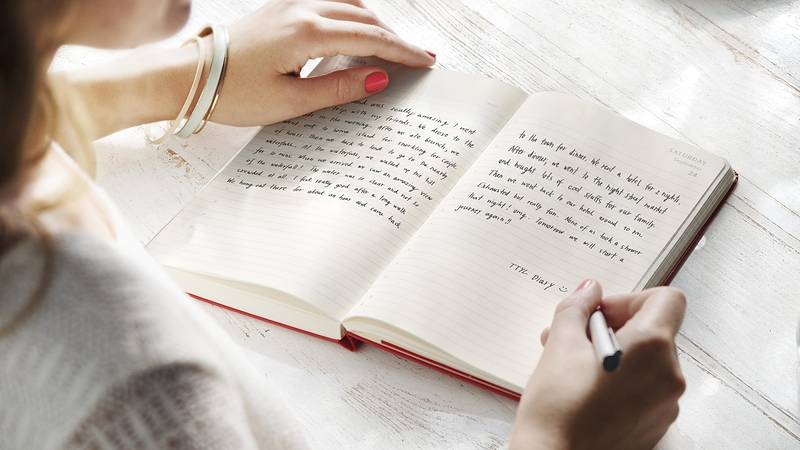 was really amazing. I went
with my friends. We drove to the
in the morning. After we ate brunch, we
went out to some island for snorkeling for couple
of hours. Then we had to land to go to the nearby
waterfalls. At the waterfalls, we walked up the hill
for 20 mins. When we arrived we saw an amazing view
of the waterfalls. The water was so clear and not so
crowded at all. I felt really good after a long walk.
We hung out there for about an hour and came back
SATURDAY
24
to the town for dinner. We rent a hotel for 2 nights.
After dinner, we went to the night street market
and bought lots of cool stuffs for our family.
Then we went back to our hotel around 10 pm.
Exhausted but really fun. None of us took a shower
that night! omg. Tomorrow we will start a
journey again!!
TTYL Diary :)